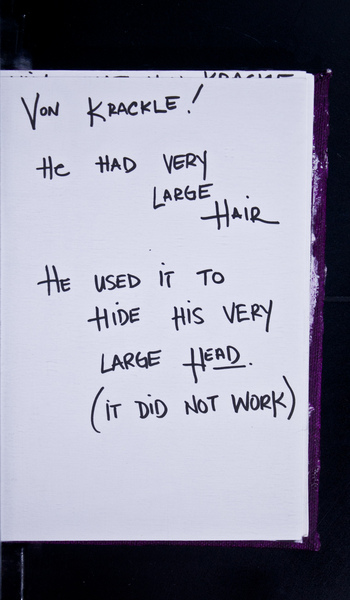 VON KRACKLE!
HE HAD VERY
LARGE
HAIR
HE USED IT TO
HIDE HIS VERY
LARGE HEAD.
(IT DID NOT WORK)